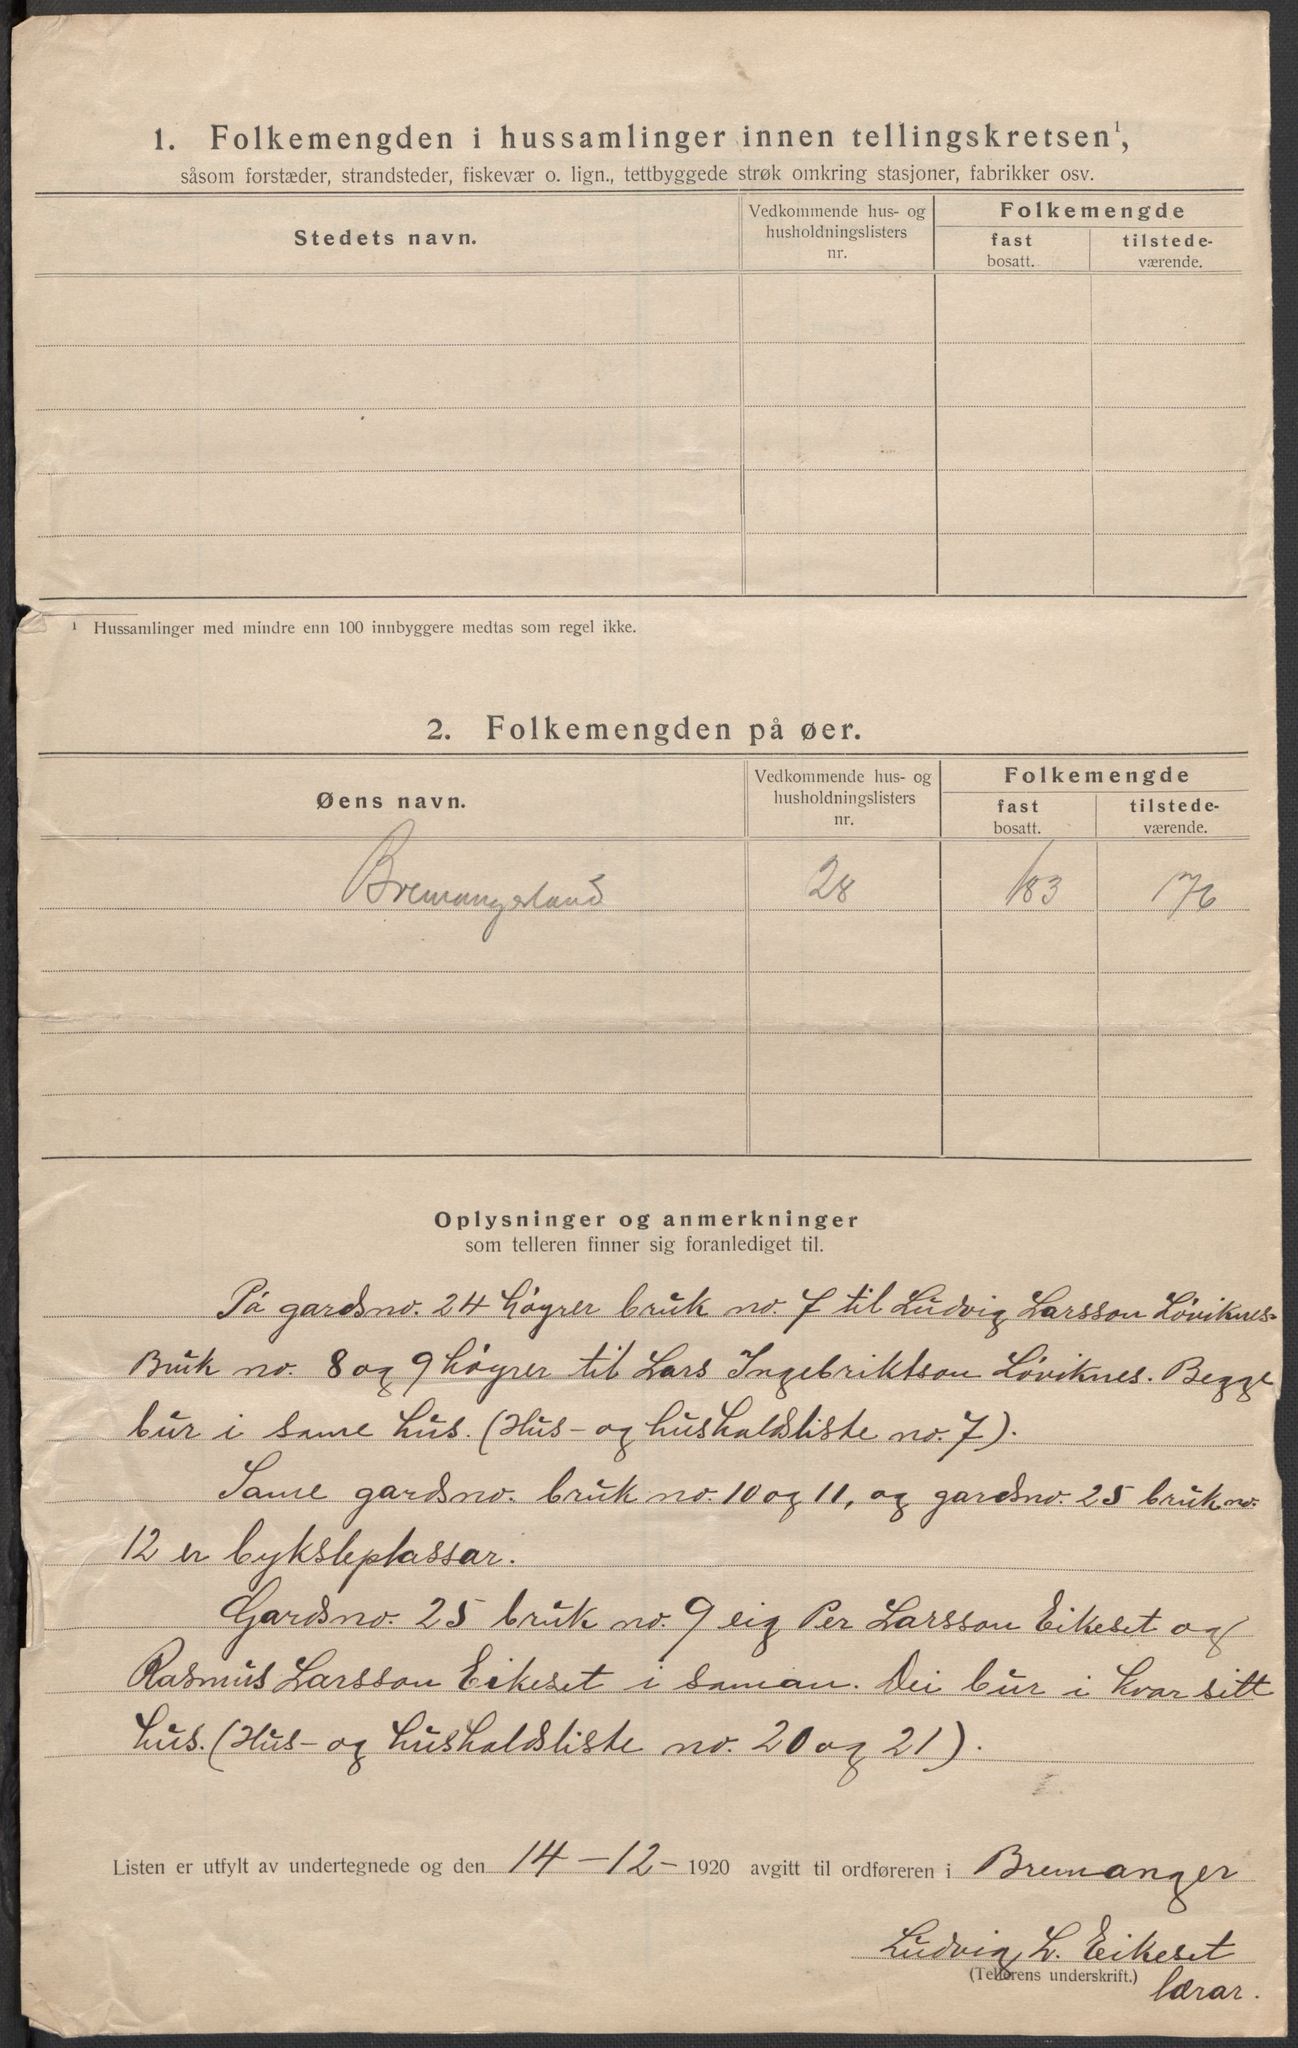 1. Folkemengden i hussamlinger innen tellingskretsen¹,
såsom forstæder, strandsteder, fiskevær o. lign., tettbyggede strøk omkring stasjoner, fabrikker osv.
Stedets navn.
Vedkommende hus- og
husholdningslisters
nr.
Folkemengde
fast
bosatt.
tilstede-
værende.
¹ Hussamlinger med mindre enn 100 innbyggere medtas som regel ikke.
2. Folkemengden på øer.
Øens navn.
Vedkommende hus- og
husholdningslisters
nr.
Folkemengde
fast
bosatt.
tilstede-
værende.
Bremangerland 28 183 176
Oplysninger og anmerkninger
som telleren finner sig foranlediget til.
På gardsno. 24 höyrer bruk no. 7 til Ludvig Larsson Löviknes.
Bruk no. 8 og 9 höyrer til Lars Ingebriktson Löviknes. Begge
bur i same hus. (Hus- og hushaldsliste no. 7).
Same gardsno. bruk no. 10 og 11, og gardsno. 25 bruk no.
12 er byksleplassar.
Gardsno. 25 bruk no. 9 eig Per Larsson Eikeset og
Rasmus Larsson Eikeset i saman. Dei bur i kvar sitt
hus. (Hus- og hushaldsliste no. 20 og 21).
Listen er utfylt av undertegnede og den 14-12- 1920 avgitt til ordføreren i Bremanger
Ludvig L. Eikeset
(Tellerens underskrift.)
lærar.